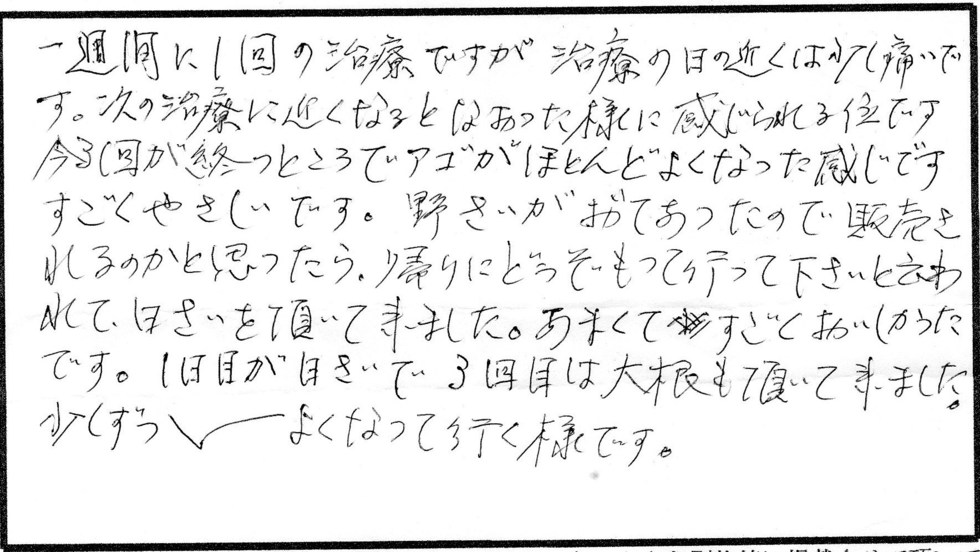 一週間に1回の治療ですが治療の日の近くは少し痛いで
す。次の治療に近くなるとなおった様に感じられる位です
今3回が終つところでアゴがほとんどよくなった感じです
すごくやさしいです。野さいがおいてあったので販売さ
れるのかと思ったら、帰りにどうぞもって行って下さいと云わ
れて、白さいを頂いて来ました。あまくてすごくおいしかった
です。1回目が白さいで3回目は大根も頂いて来ました。
少しずつよくなって行く様です。